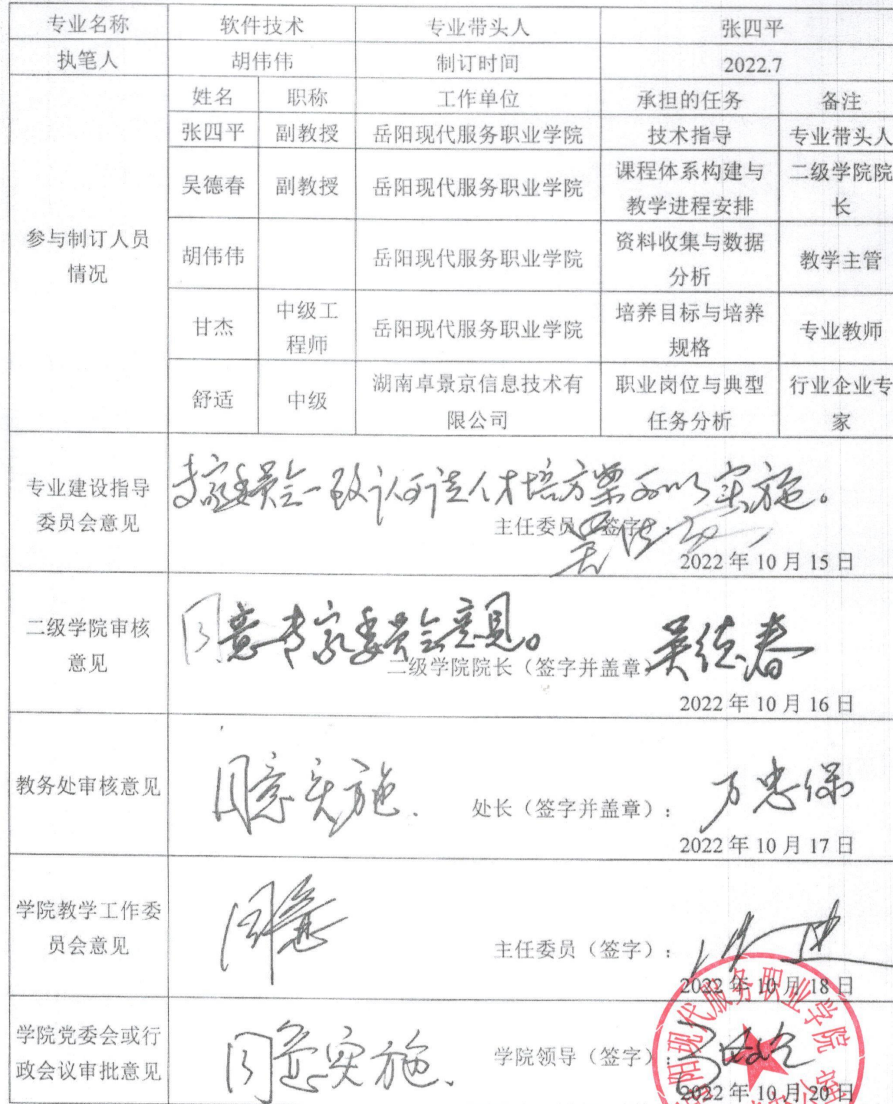 专业名称 软件技术 专业带头人 张四平
执笔人 胡伟伟 制订时间 2022.7
参与制订人员
情况
姓名 职称 工作单位 承担的任务 备注
张四平 副教授 岳阳现代服务职业学院 技术指导 专业带头人
吴德春 副教授 岳阳现代服务职业学院 课程体系构建与
教学进程安排 二级学院院
长
胡伟伟 岳阳现代服务职业学院 资料收集与数据
分析 教学主管
甘杰 中级工
程师 岳阳现代服务职业学院 培养目标与培养
规格 专业教师
舒适 中级 湖南卓景京信息技术有
限公司 职业岗位与典型
任务分析 行业企业专
家
专业建设指导
委员会意见
专家委员会一致认可该人才培方案可以实施。
主任委员（签字）：
2022 年 10 月 15 日
二级学院审核
意见
同意专家委员会意见。
二级学院院长（签字并盖章 吴德春
2022 年 10 月 16 日
教务处审核意见
同意实施.
处长（签字并盖章）： 万忠保
2022 年 10 月 17 日
学院教学工作委
员会意见
同意
主任委员（签字）：
2022 年 10 月 18 日
学院党委会或行
政会议审批意见
同意实施.
学院领导（签字）：
2022 年 10 月 20 日
岳阳现代服务职业学院